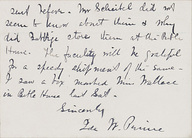 sent before. Mr Scheitel did not
seem to know about them & why
did Biddle store them at
House. The faculty will be grateful
for a speedy shipment of the same.
I saw a Fox Mrs. Wallace
in Bette House last Sat.
Sincerely
W. Prince